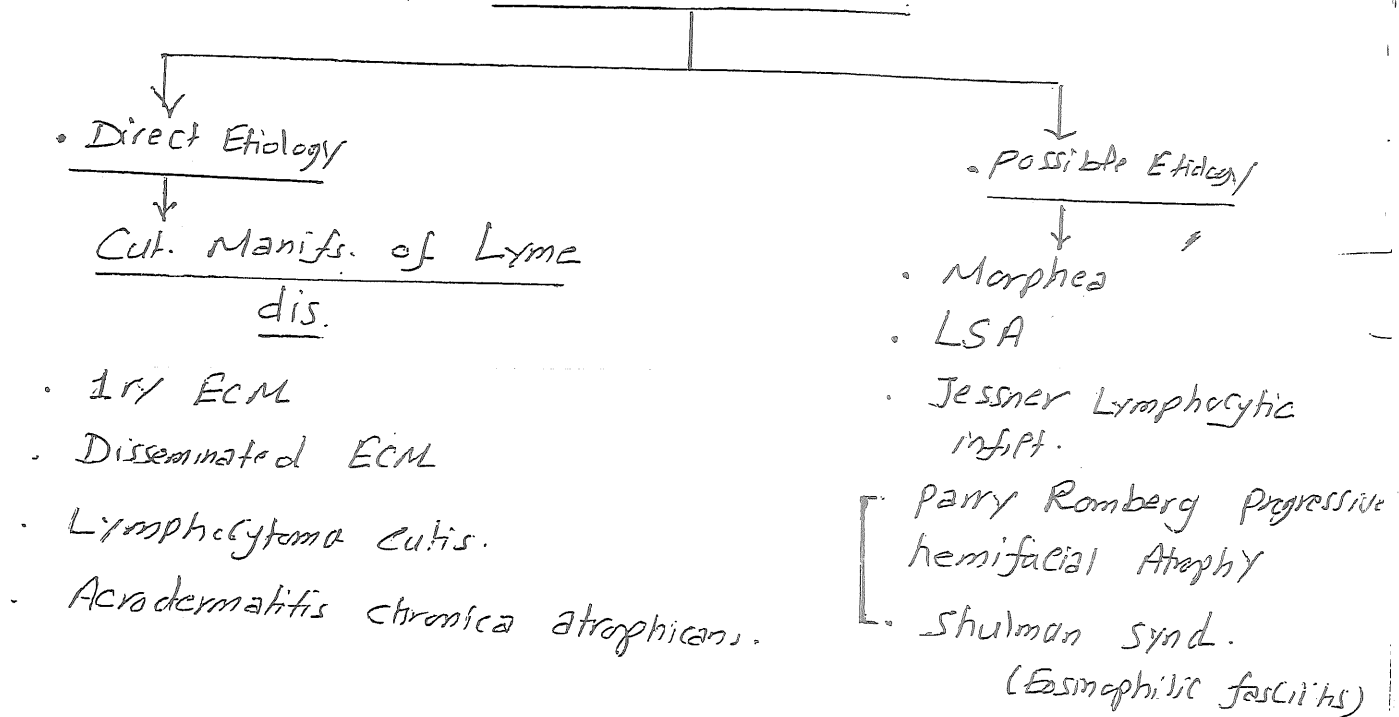 . Direct Etiology
Cut. Manifs. of Lyme
dis.
. 1ry ECM
. Disseminated ECM
. Lymphocytoma cutis.
. Acrodermatitis chronica atrophicans.
. Possible Etiology
. Morphea
. LSA
. Jessner Lymphocytic
infilt.
. Parry Romberg Progressive
hemifacial Atrophy
. Shulman synd.
(Eosinophilic fasciitis)